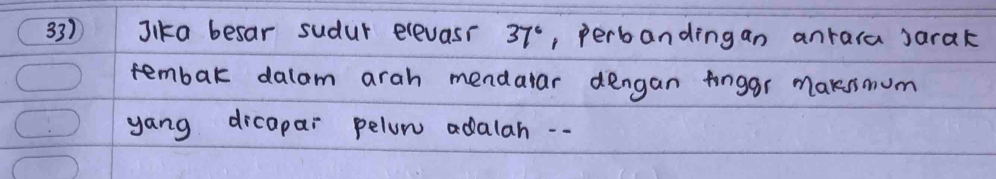 33) Jika besar sudut elevasi 37°, perbandingan antara jarak
tembak dalam arah mendatar dengan tinggi maksimum
yang dicapai peluru adalah --